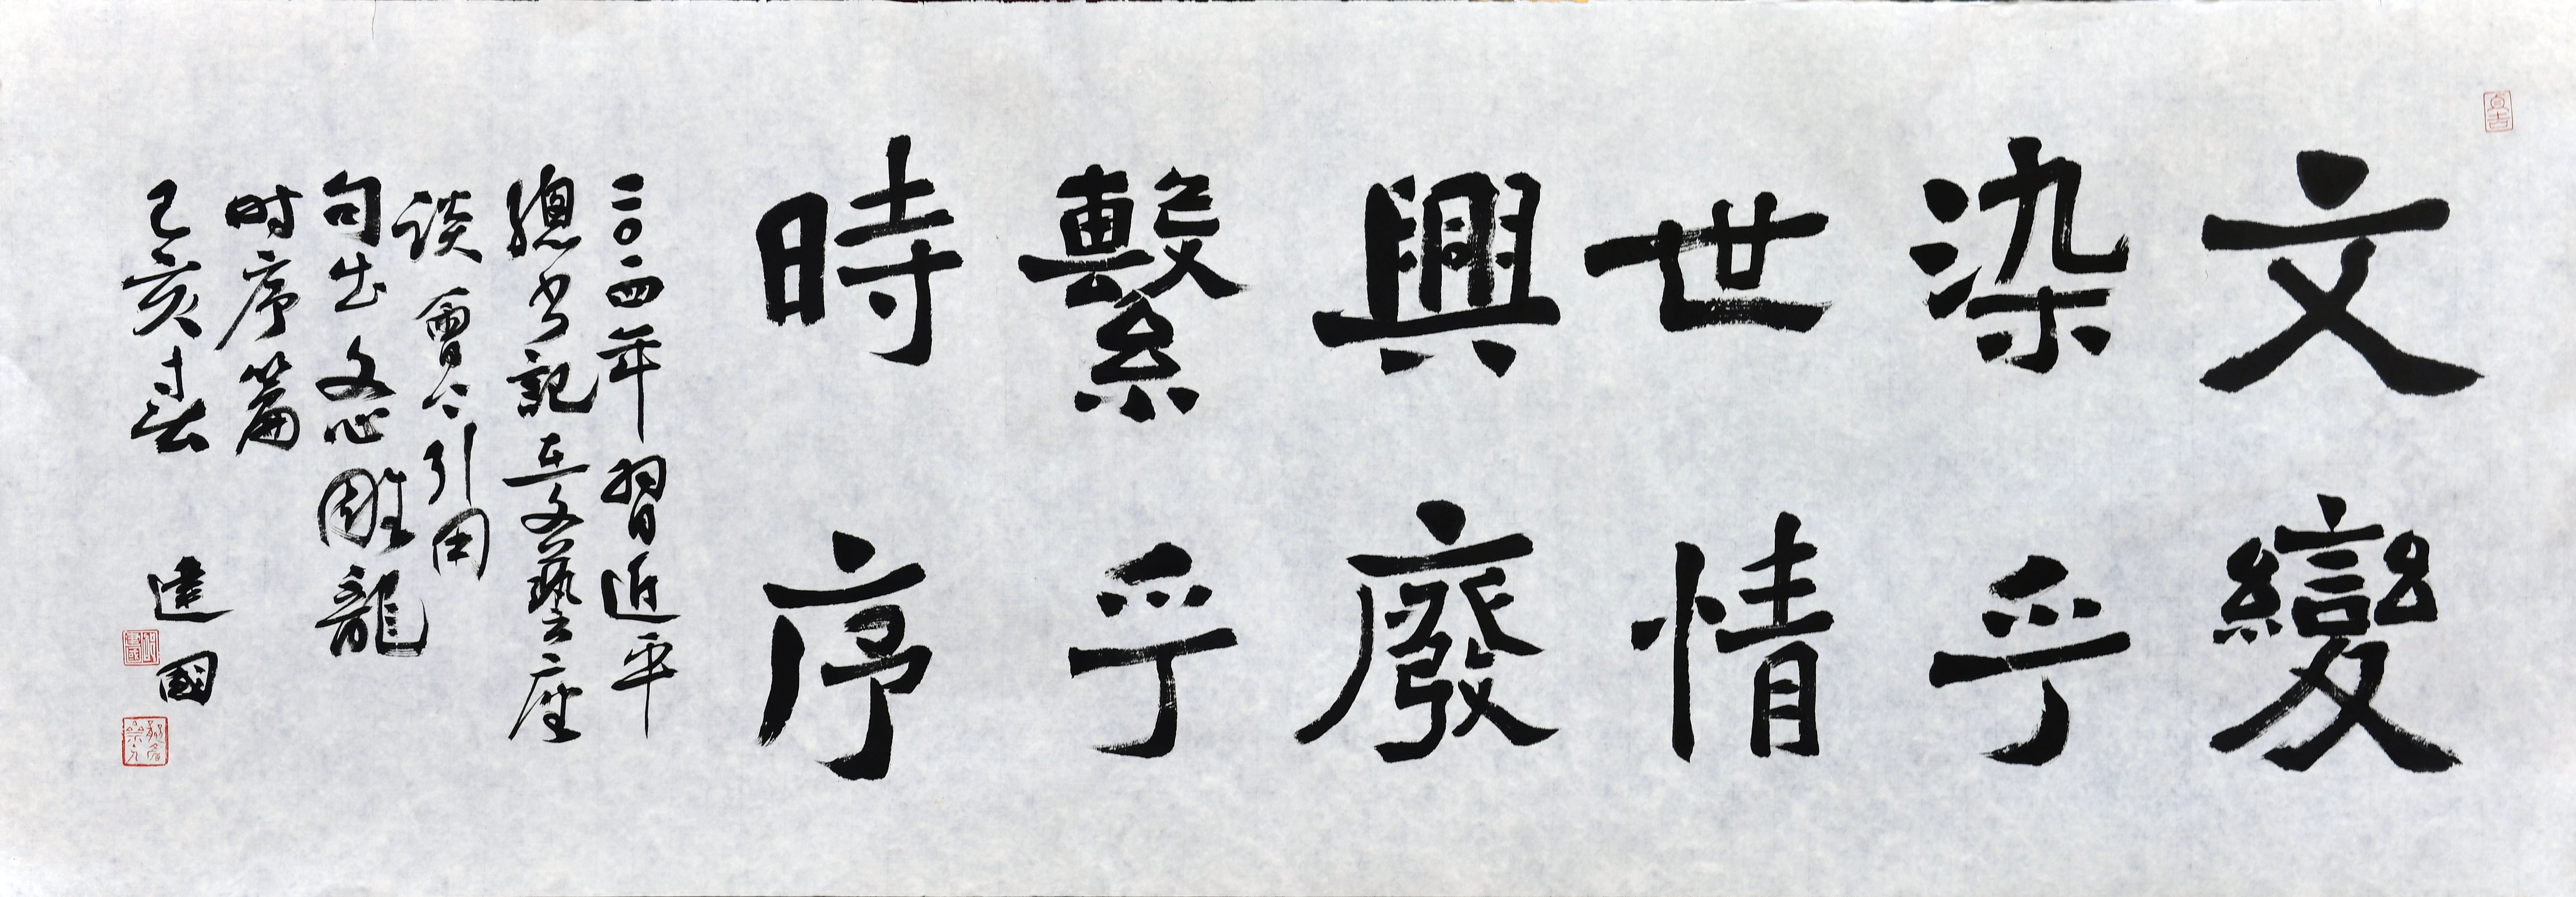 貞吉
文變
染乎
世情
興廢
繫乎
時序
二〇一四年習近平
總书記在文藝座
談會上引用
句出文心雕龍
时序篇
己亥春 建國